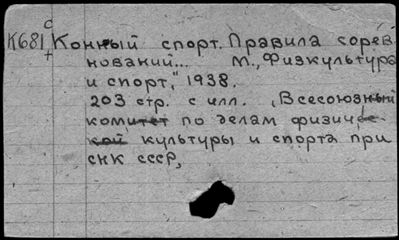 с
К681 Конный спорт. Правила сорев-
т нований... М., "Физкультура
и спорт," 1938.
203 стр. с илл. (Всесоюзный
комитет по делам физиче-
ской культуры и спорта при
СНК СССР,